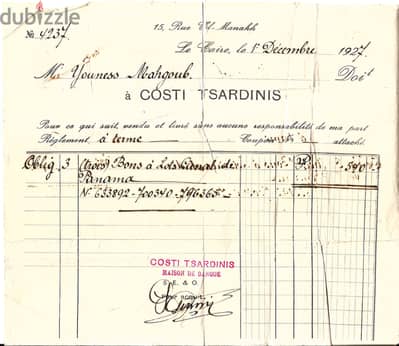 dubizzle
№ 4237.
15, Rue El-Manakh
Le Caire, le 1er Décembre 1927
Mr Youness Mahgoub. Doit
à COSTI TSARDINIS
Pour ce qui suit, vendu et livré sans aucune responsabilité de ma part
Règlement, à terme Coupon attaché.
Oblig 3 (trois) Bons à Lots Canal de 540
Panama
Nº 653892-700340-796365
COSTI TSARDINIS
MAISON DE BANQUE
S. E. & O.